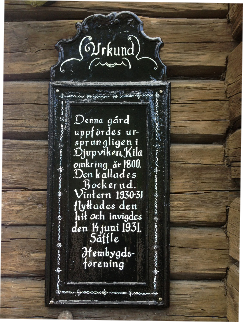 Urkund
Denna gård
uppfördes ur-
sprungligen i
Djupviken, Kila
omkring år 1800.
Den kallades
Bockernd.
Vintern 1930-31
flyttades den
hit och invigdes
den 14 juni 1931.
Säffle
Hembygds-
förening